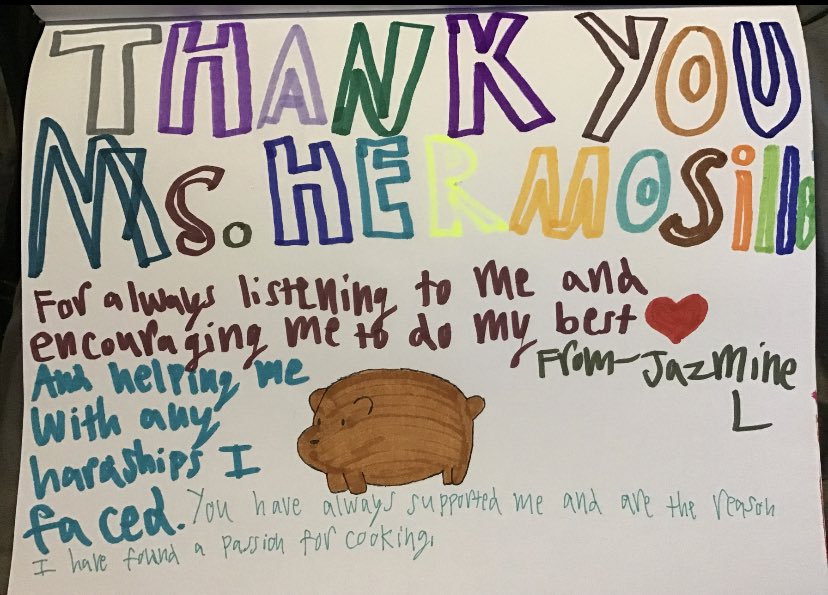 THANK YOU
Ms. HERMOSillo
For always listening to me and
encouraging me to do my best
From- Jazmine
L
And helping me
with any
haraships I
faced.
You have always supported me and are the reason
I have found a passion for cooking.